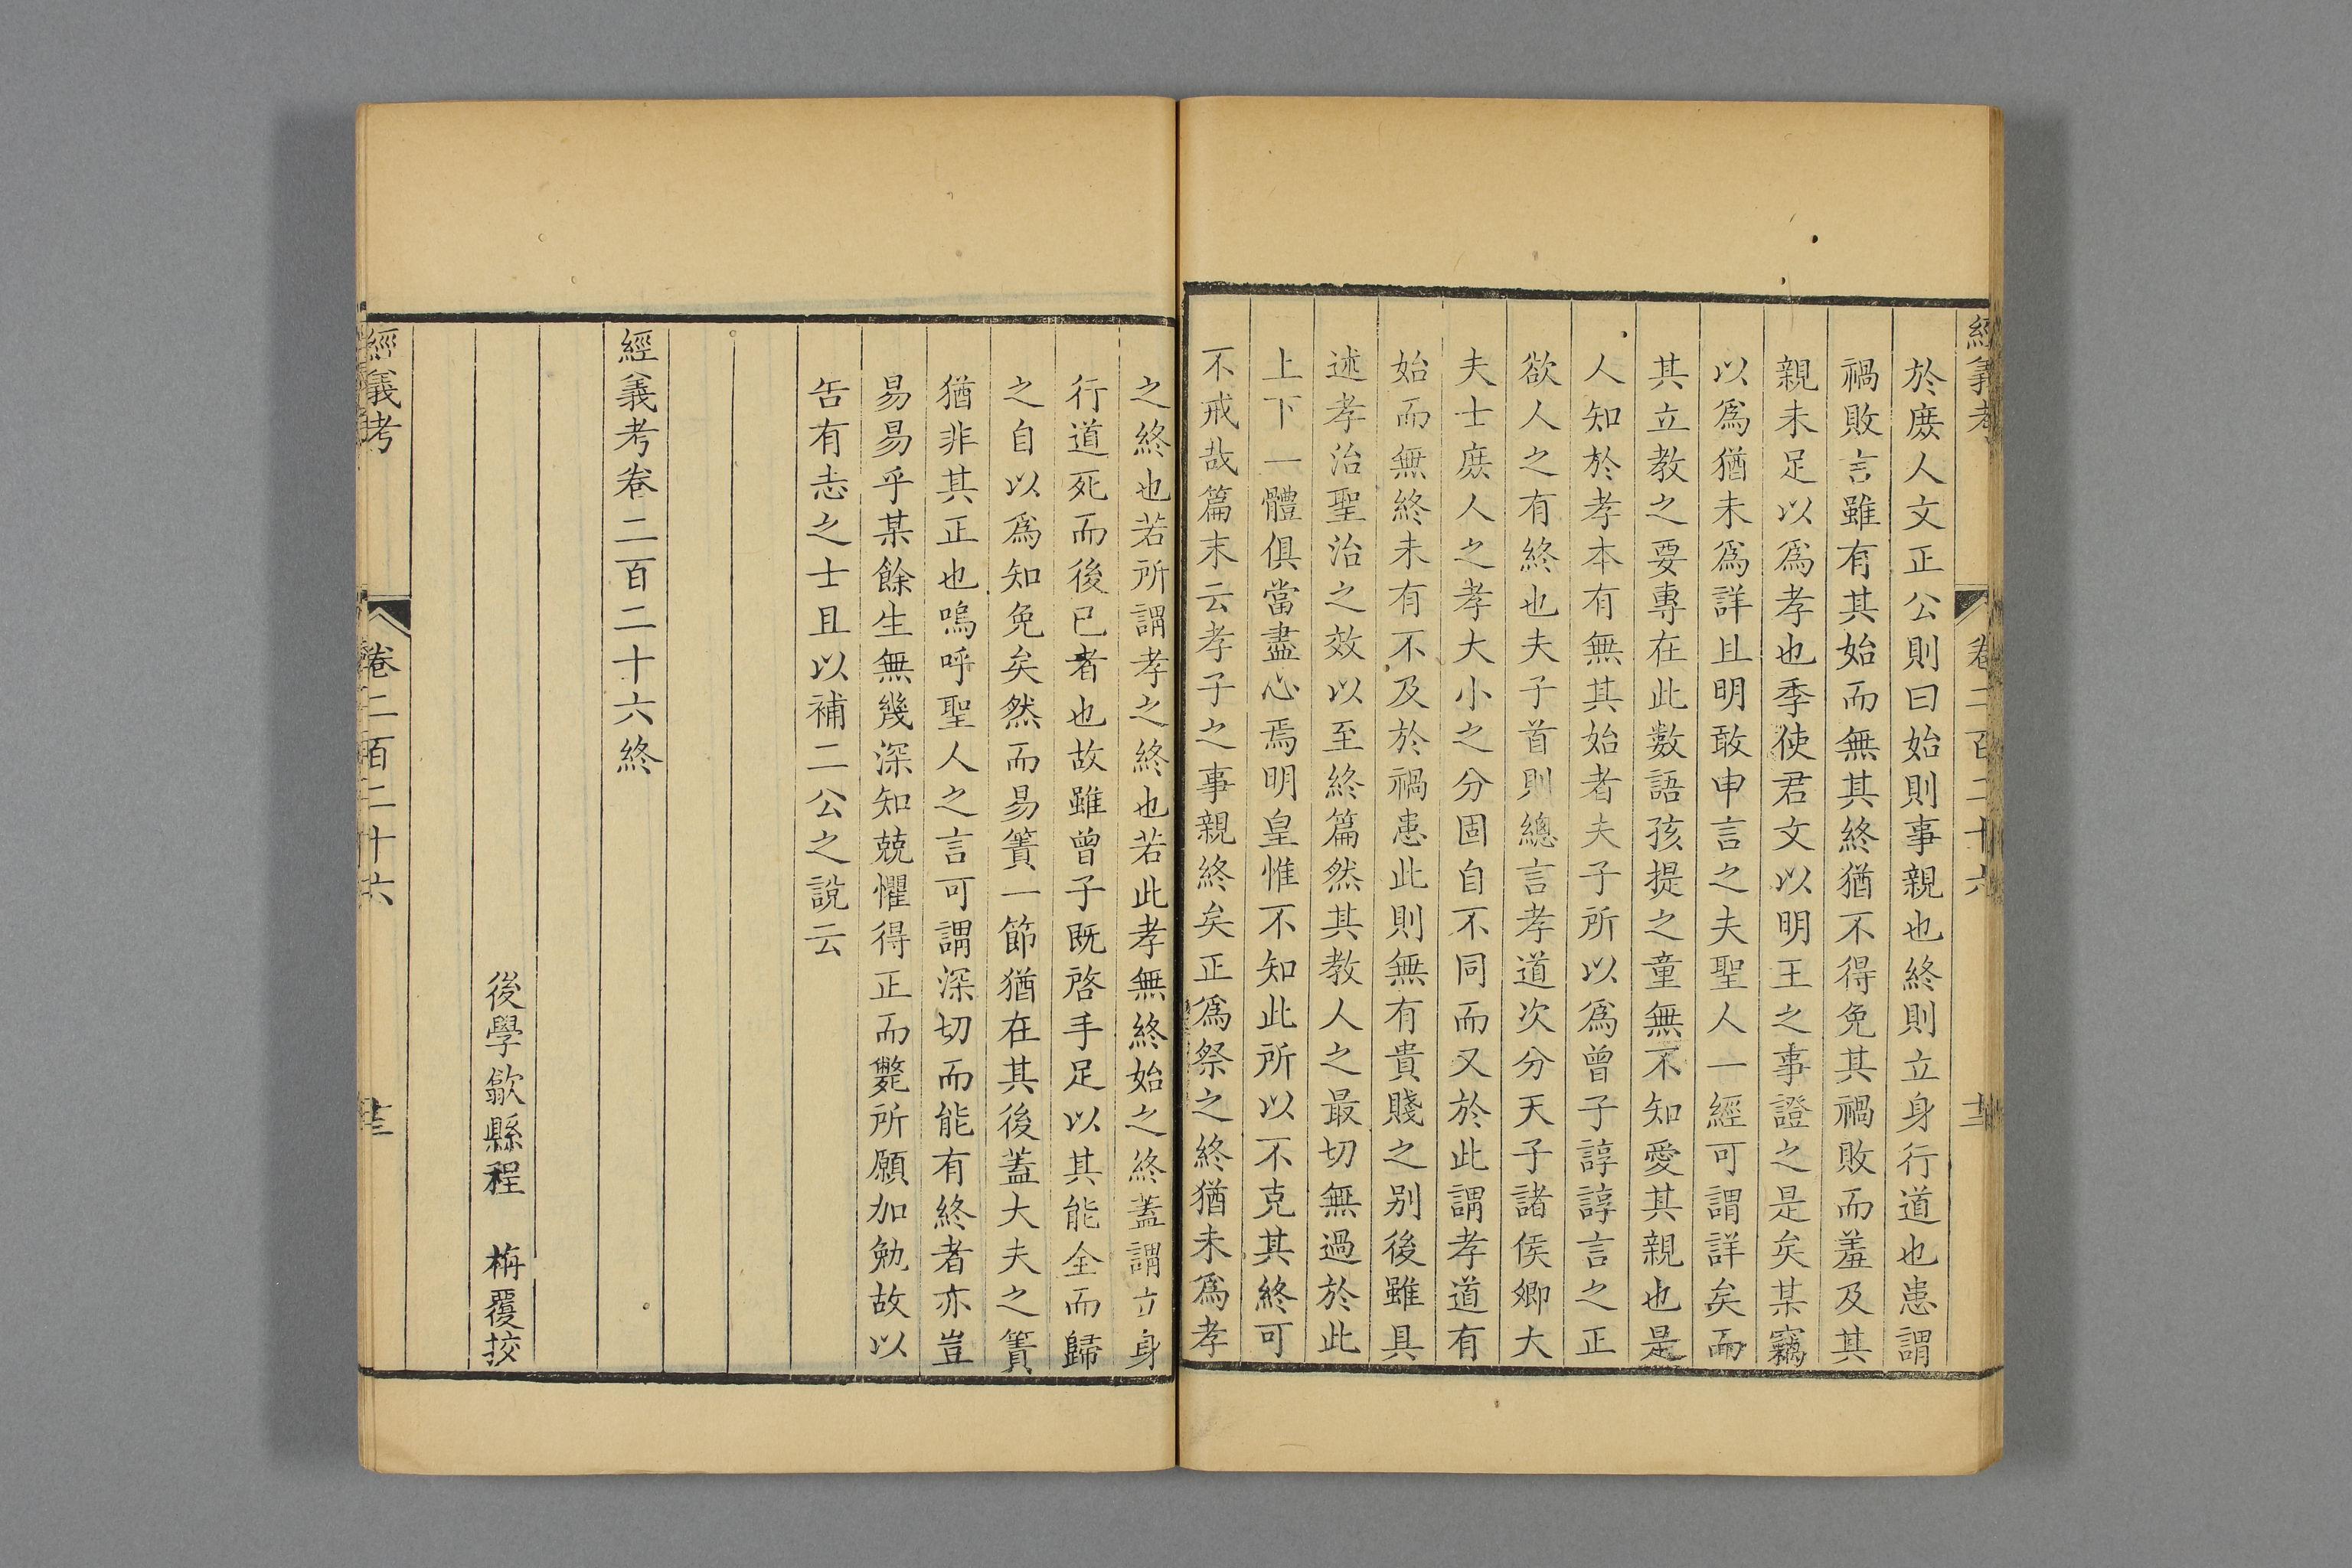 於庻人文正公則曰始則事親也終則立身行道也患謂
禍敗言雖有其始而無其終猶不得免其禍敗而羞及其
親未足以爲孝也季使君文以明王之事證之是矣某竊
以爲猶未爲詳且明敢申言之夫聖人一經可謂詳矣而
其立教之要專在此數語孩提之童無不知愛其親也是
人知於孝本有無其始者夫子所以爲曾子諄諄言之正
欲人之有終也夫子首則總言孝道次分天子諸侯卿大
夫士庻人之孝大小之分固自不同而又於此謂孝道有
始而無終未有不及於禍患此則無有貴賤之别後雖具
述孝治聖治之效以至終篇然其教人之最切無過於此
上下一體俱當盡心焉明皇惟不知此所以不克其終可
不戒哉篇末云孝子之事親終矣正爲祭之終猶未爲孝
之終也若所謂孝之終也若此孝無終始之終蓋謂立身
行道死而後已者也故雖曾子既啓手足以其能全而歸
之自以爲知免矣然而易簀一節猶在其後蓋大夫之簀
猶非其正也嗚呼聖人之言可謂深切而能有終者亦豈
易易乎某餘生無幾深知兢懼得正而斃所願加勉故以
告有志之士且以補二公之說云
經義考卷二百二十六終
後學歙縣程　梅覆挍
經義考　卷二百二十六